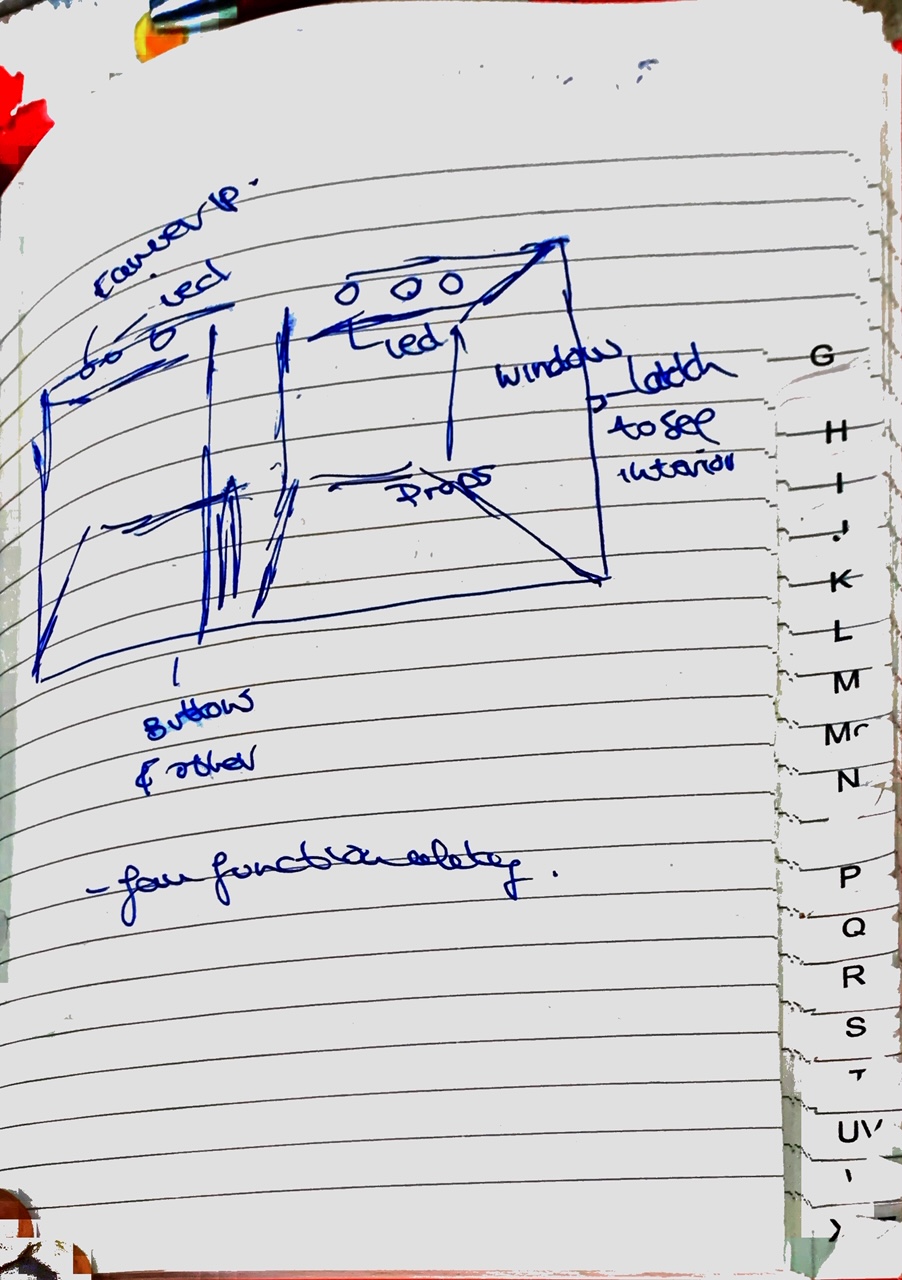 Led
Led
window
Latch
to see
interior
Props
Button
& other
- fan function
G
H
I
J
K
L
M
Mc
N
P
Q
R
S
T
UV